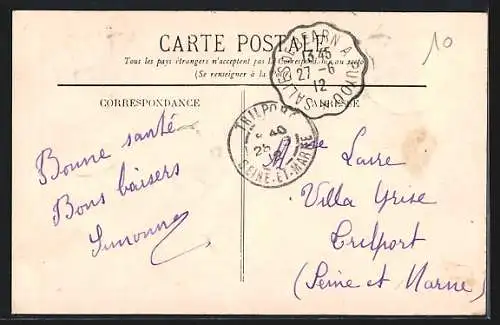 CARTE POSTALE
Tous les pays étrangers n'acceptent pas la Correspondance au recto
(Se renseigner à la Poste)
CORRESPONDANCE
ADRESSE
10
SALIES-DE-BEARN A PUYOO
13 45
27-6
12
TRILPORT
SEINE-ET-MARNE
Bonne santé
Bons baisers
Simonne
Laire
Villa Grise
Trilport
(Seine et Marne)